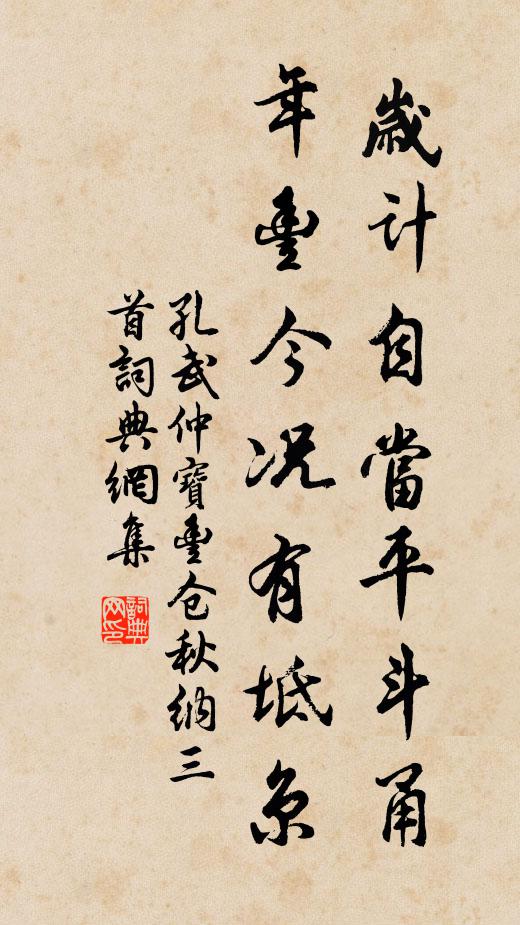 歲計自當平斗甬
年豐今況有坻京
孔武仲寶豐仓秋納三
首詞典網集
詞典网印